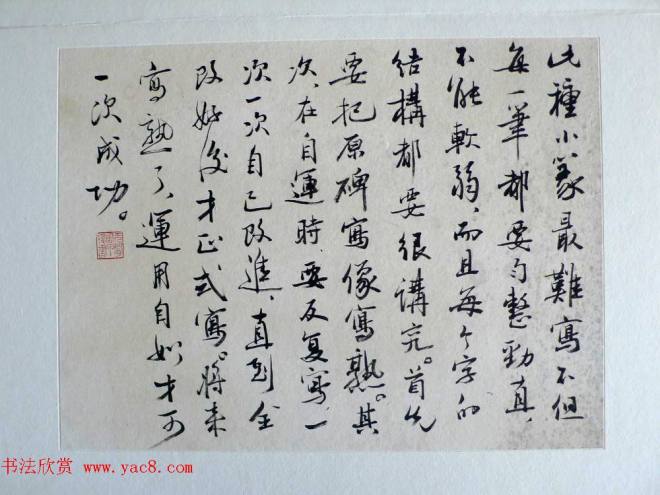 此種小篆最難寫不但
每一筆都要勻整勁直、
不能軟弱、而且每个字的
結構都要很講究。首先
要把原碑寫像寫熟。其
次、在自運時、要反复寫、一
次一次自己改進、直到全
改好後才正式寫。將来
寫熟了、運用自如才可
一次成功。
书法欣赏 www.yac8.com